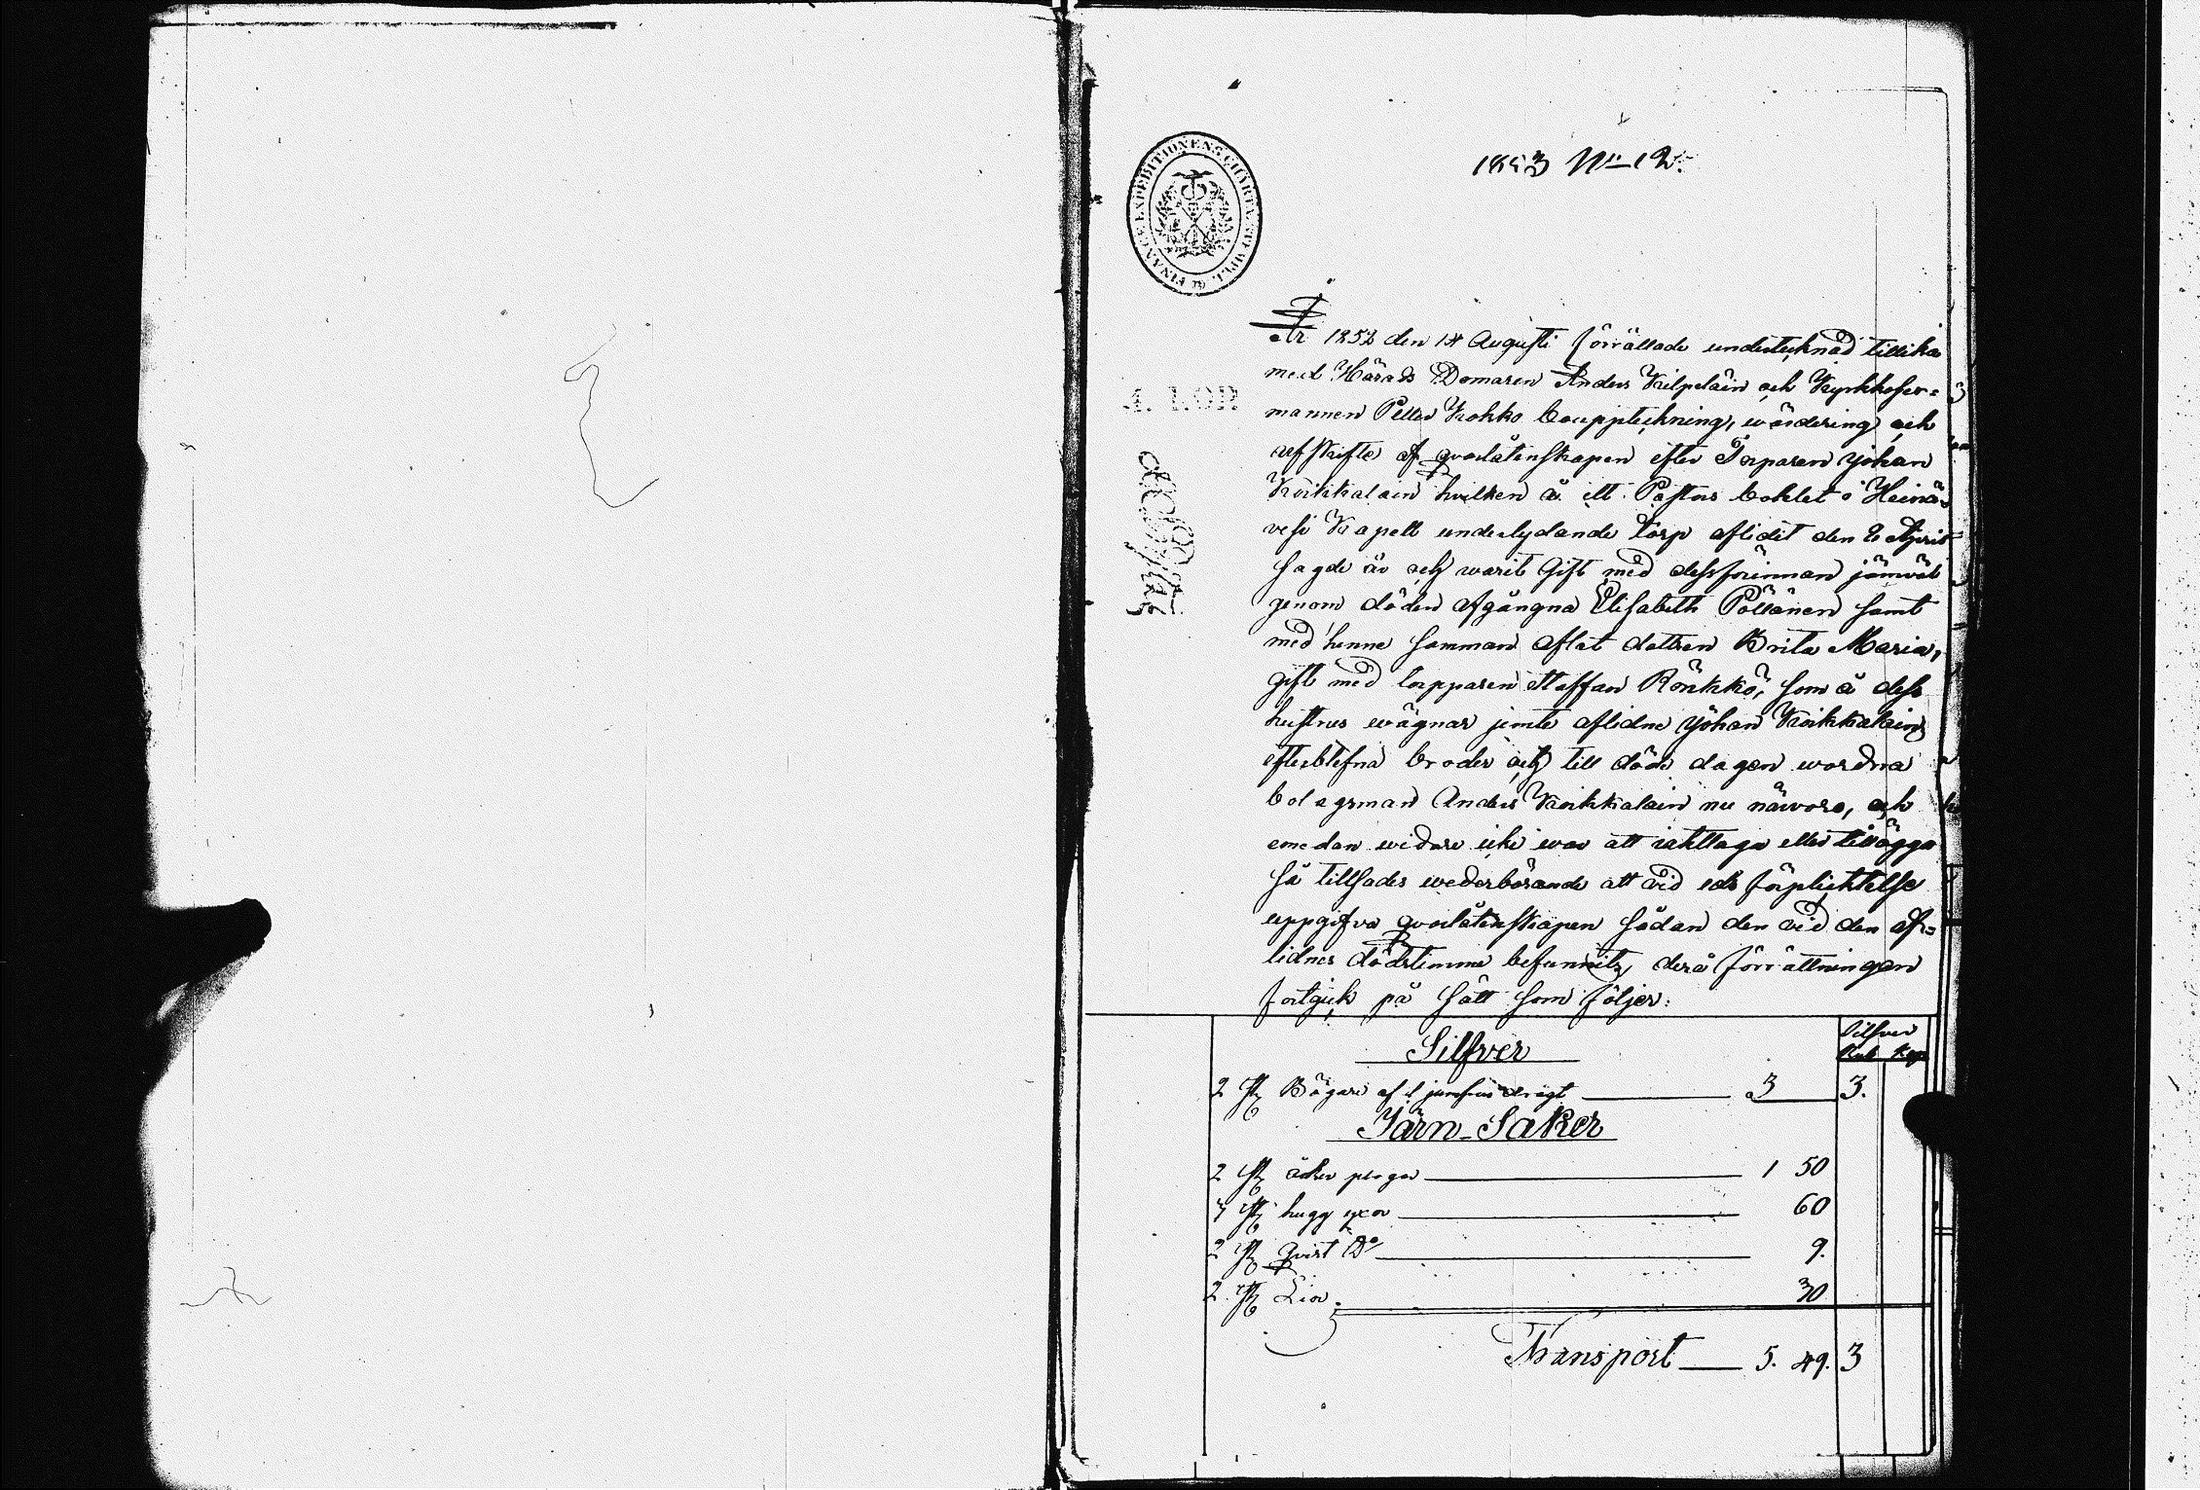 1853 No 12.
FINANCE EXPEDITIONENS CHARTÆ
År 1852 den 14 Augusti förrättade undertecknad tillika
med Härads Domaren Anders Kilpeläin och Kyrkhofer=
mannen Petter Kohko bouppteckning, wärdering och
afskrifte af qvarlåtenskapen efter Torparen Johan
Koikkalain hvilken å ett Pastors bohlet i Heinä=
vesi Kapell underlydande torp aflidit den
sagde år och warit gift med dessförinnan jämväl
genom döden afgångna Elisabeth Pöllänen samt
med henne samman aflat dottren Brita Maria,
gift med torpparen Staffan Rönkkö, som å dess
hustrus wägnar jemte aflidne Johan Koikkalains
efterblefna broder och till död dagen wordna
bolagsman Anders Koikkalain nu närvoro, och
emedan widare icke war att iakttaga eller tillägga
så tillsades wederbörande att vid eds förplichtelse
uppgifva qvarlåtenskapen sådan den vid den af=
lidnes dödstimme befunnits, derå förrättningen
fortgick på sätt som följer:
Silfver
Silfver
Rub Kop
2 st Bägare af 3 3.
Järn-Saker
2 st åker plogar 1 50
st hugg yxor 60
2 st qvist Do 9.
2 st Liar 30
Transport 5. 49. 3